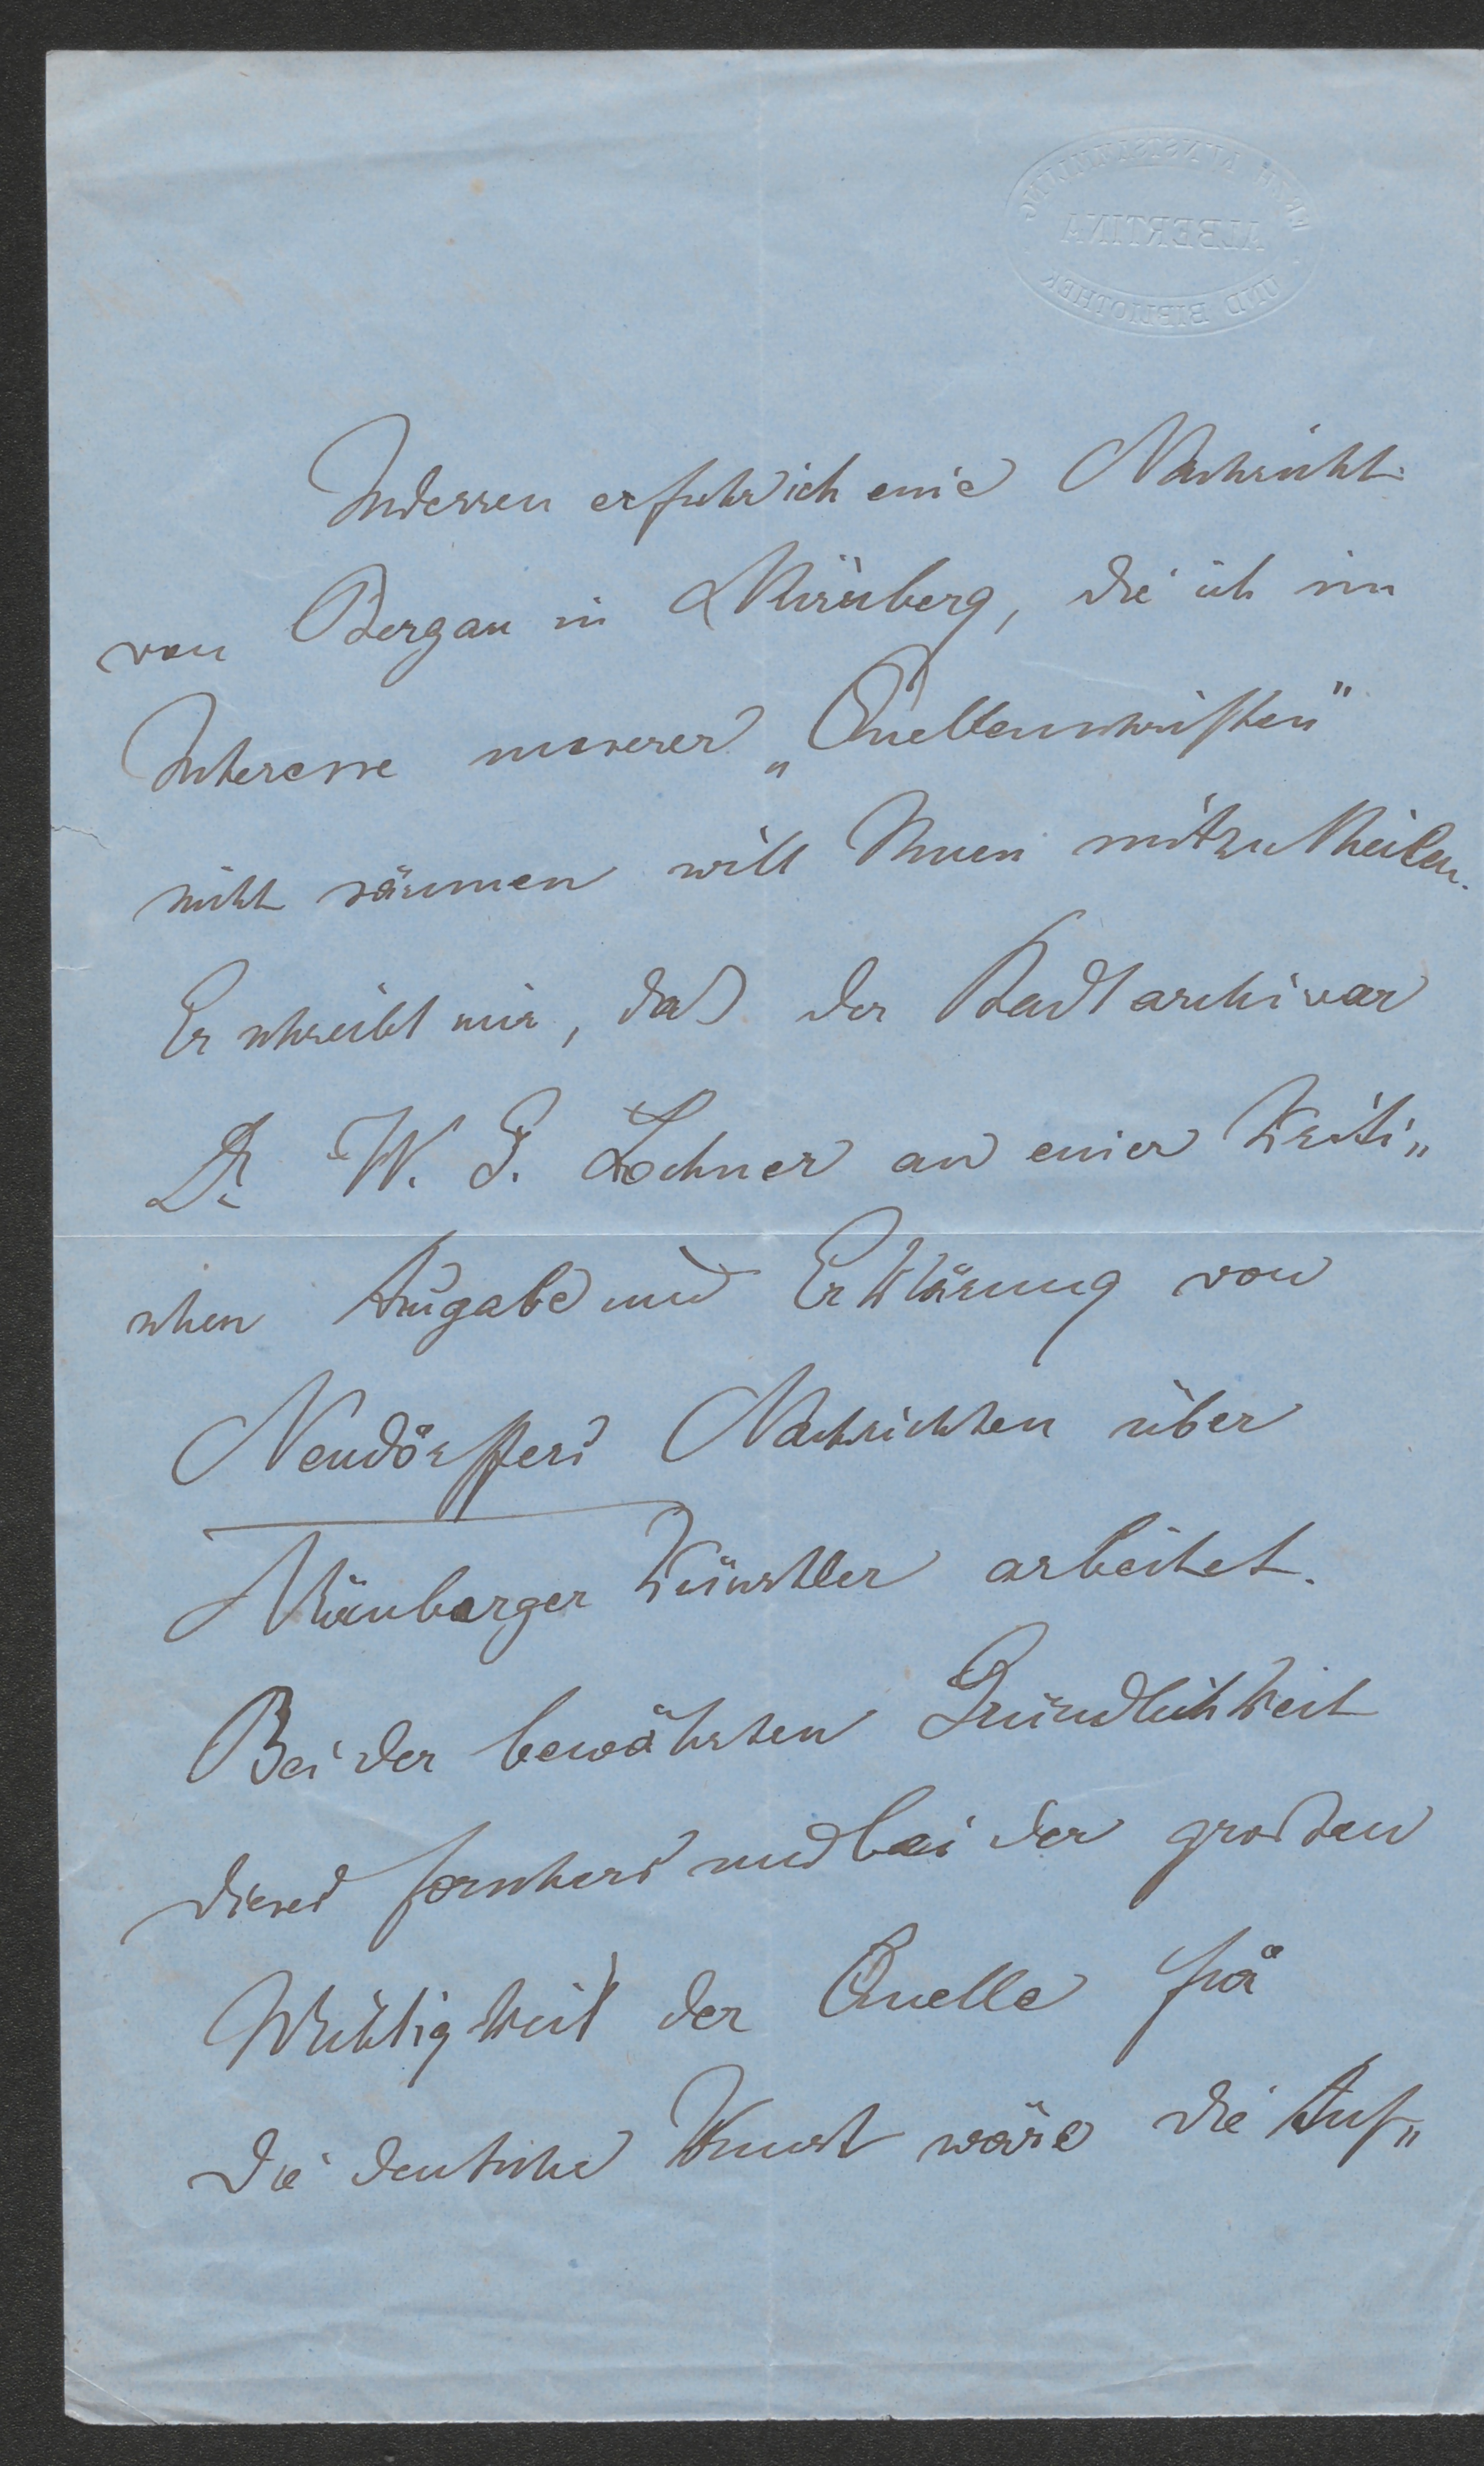 ERZH. KUNSTSAMMLUNG
ALBERTINA
UND BIBLIOTHEK
Indessen erfuhr ich eine Nachricht
von Bergau in Nürnberg, die ich im
Interesse unserer „Quellenschriften"
nicht säumen will Ihnen mitzutheilen.
Er schreibt mir, daß der Stadtarchivar
Dr W. G. Lochner an einer Kriti„
schen Ausgabe und Erklärung von
Neudörffers Nachrichten über
Nürnberger Künstler arbeitet.
Bei der bewährten Gründlichkeit
dieses Forschers und bei der großen
Wichtigkeit der Quelle für
die deutsche Kunst wäre die Auf„